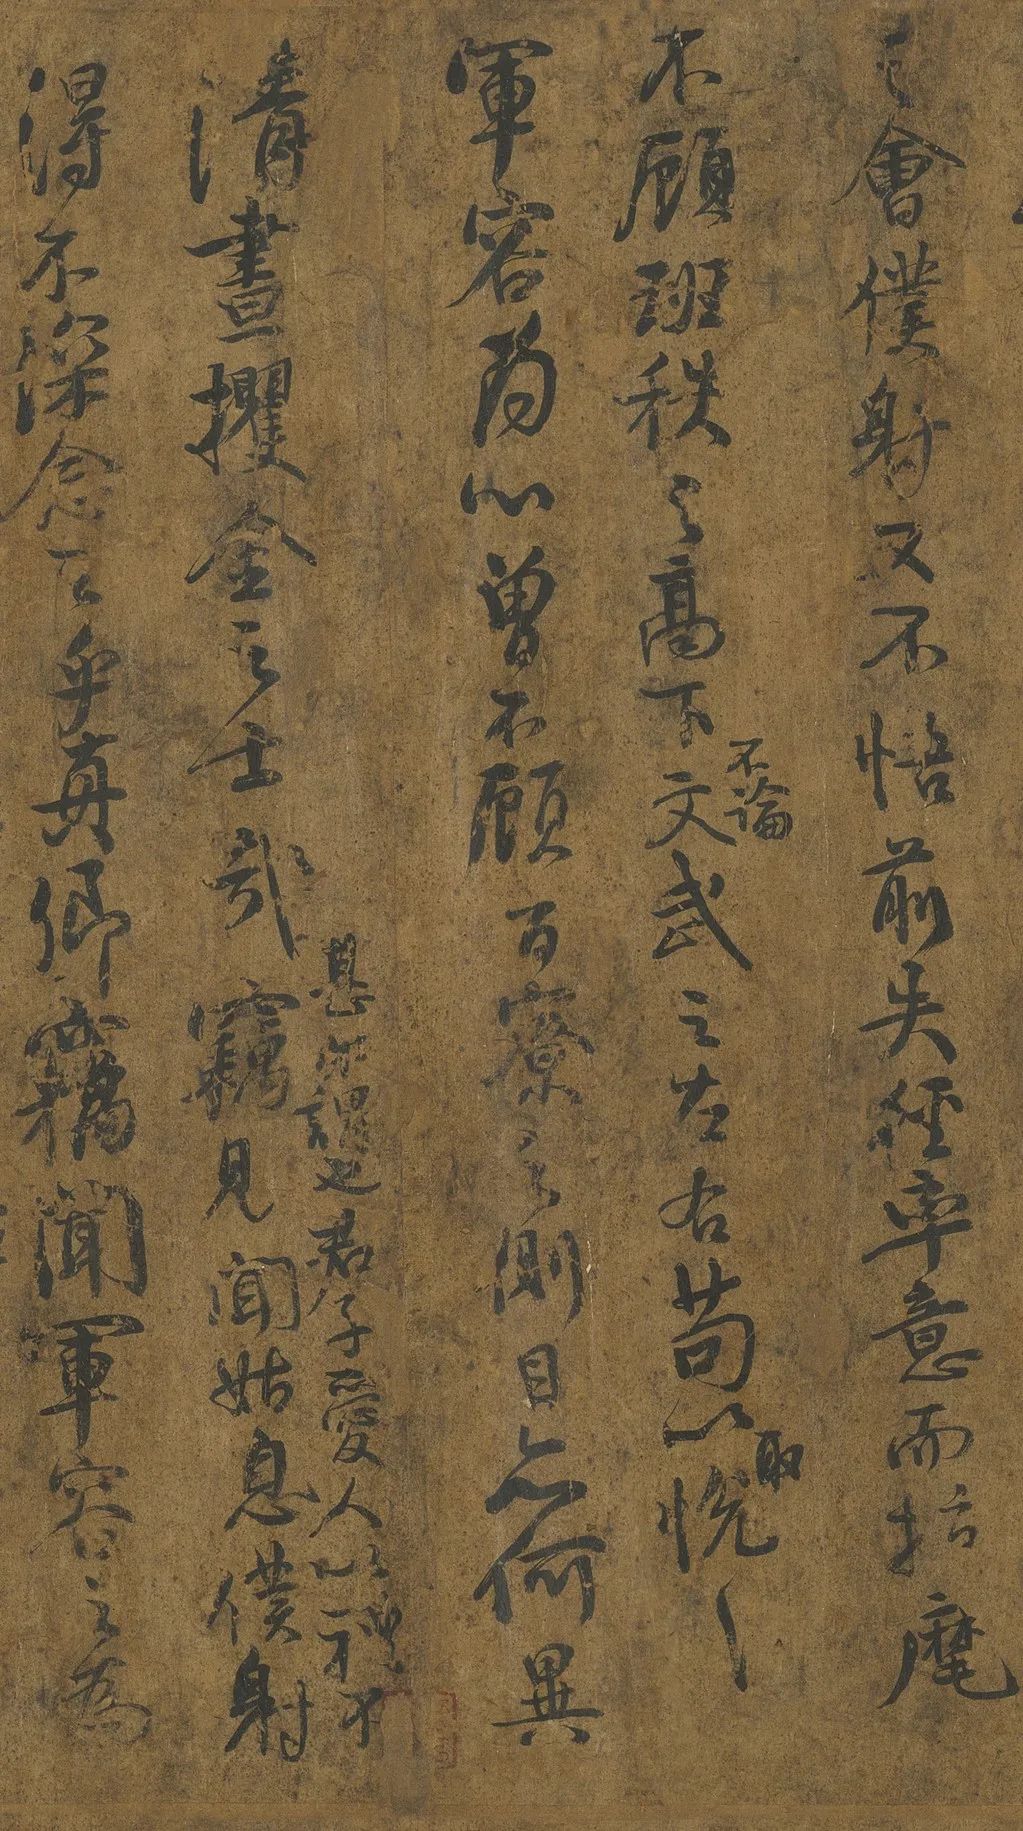 之會僕射又不悟前失徑率意而指麾
不顧班秩之高下不論文武之左右苟以取悅
軍容為心曾不顧百寮之側目亦何異
清晝攫金之士哉竊見聞姑息僕射
甚非謂也君子愛人以禮不
得不深念之乎真卿竊聞軍容之為